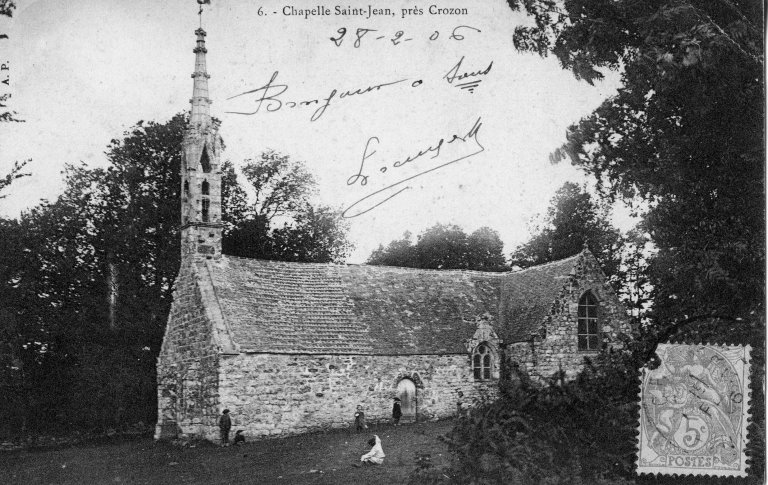 6. - Chapelle Saint-Jean, près Crozon
28-2-06
Bonjour à tous
A.P.
5c
POSTES